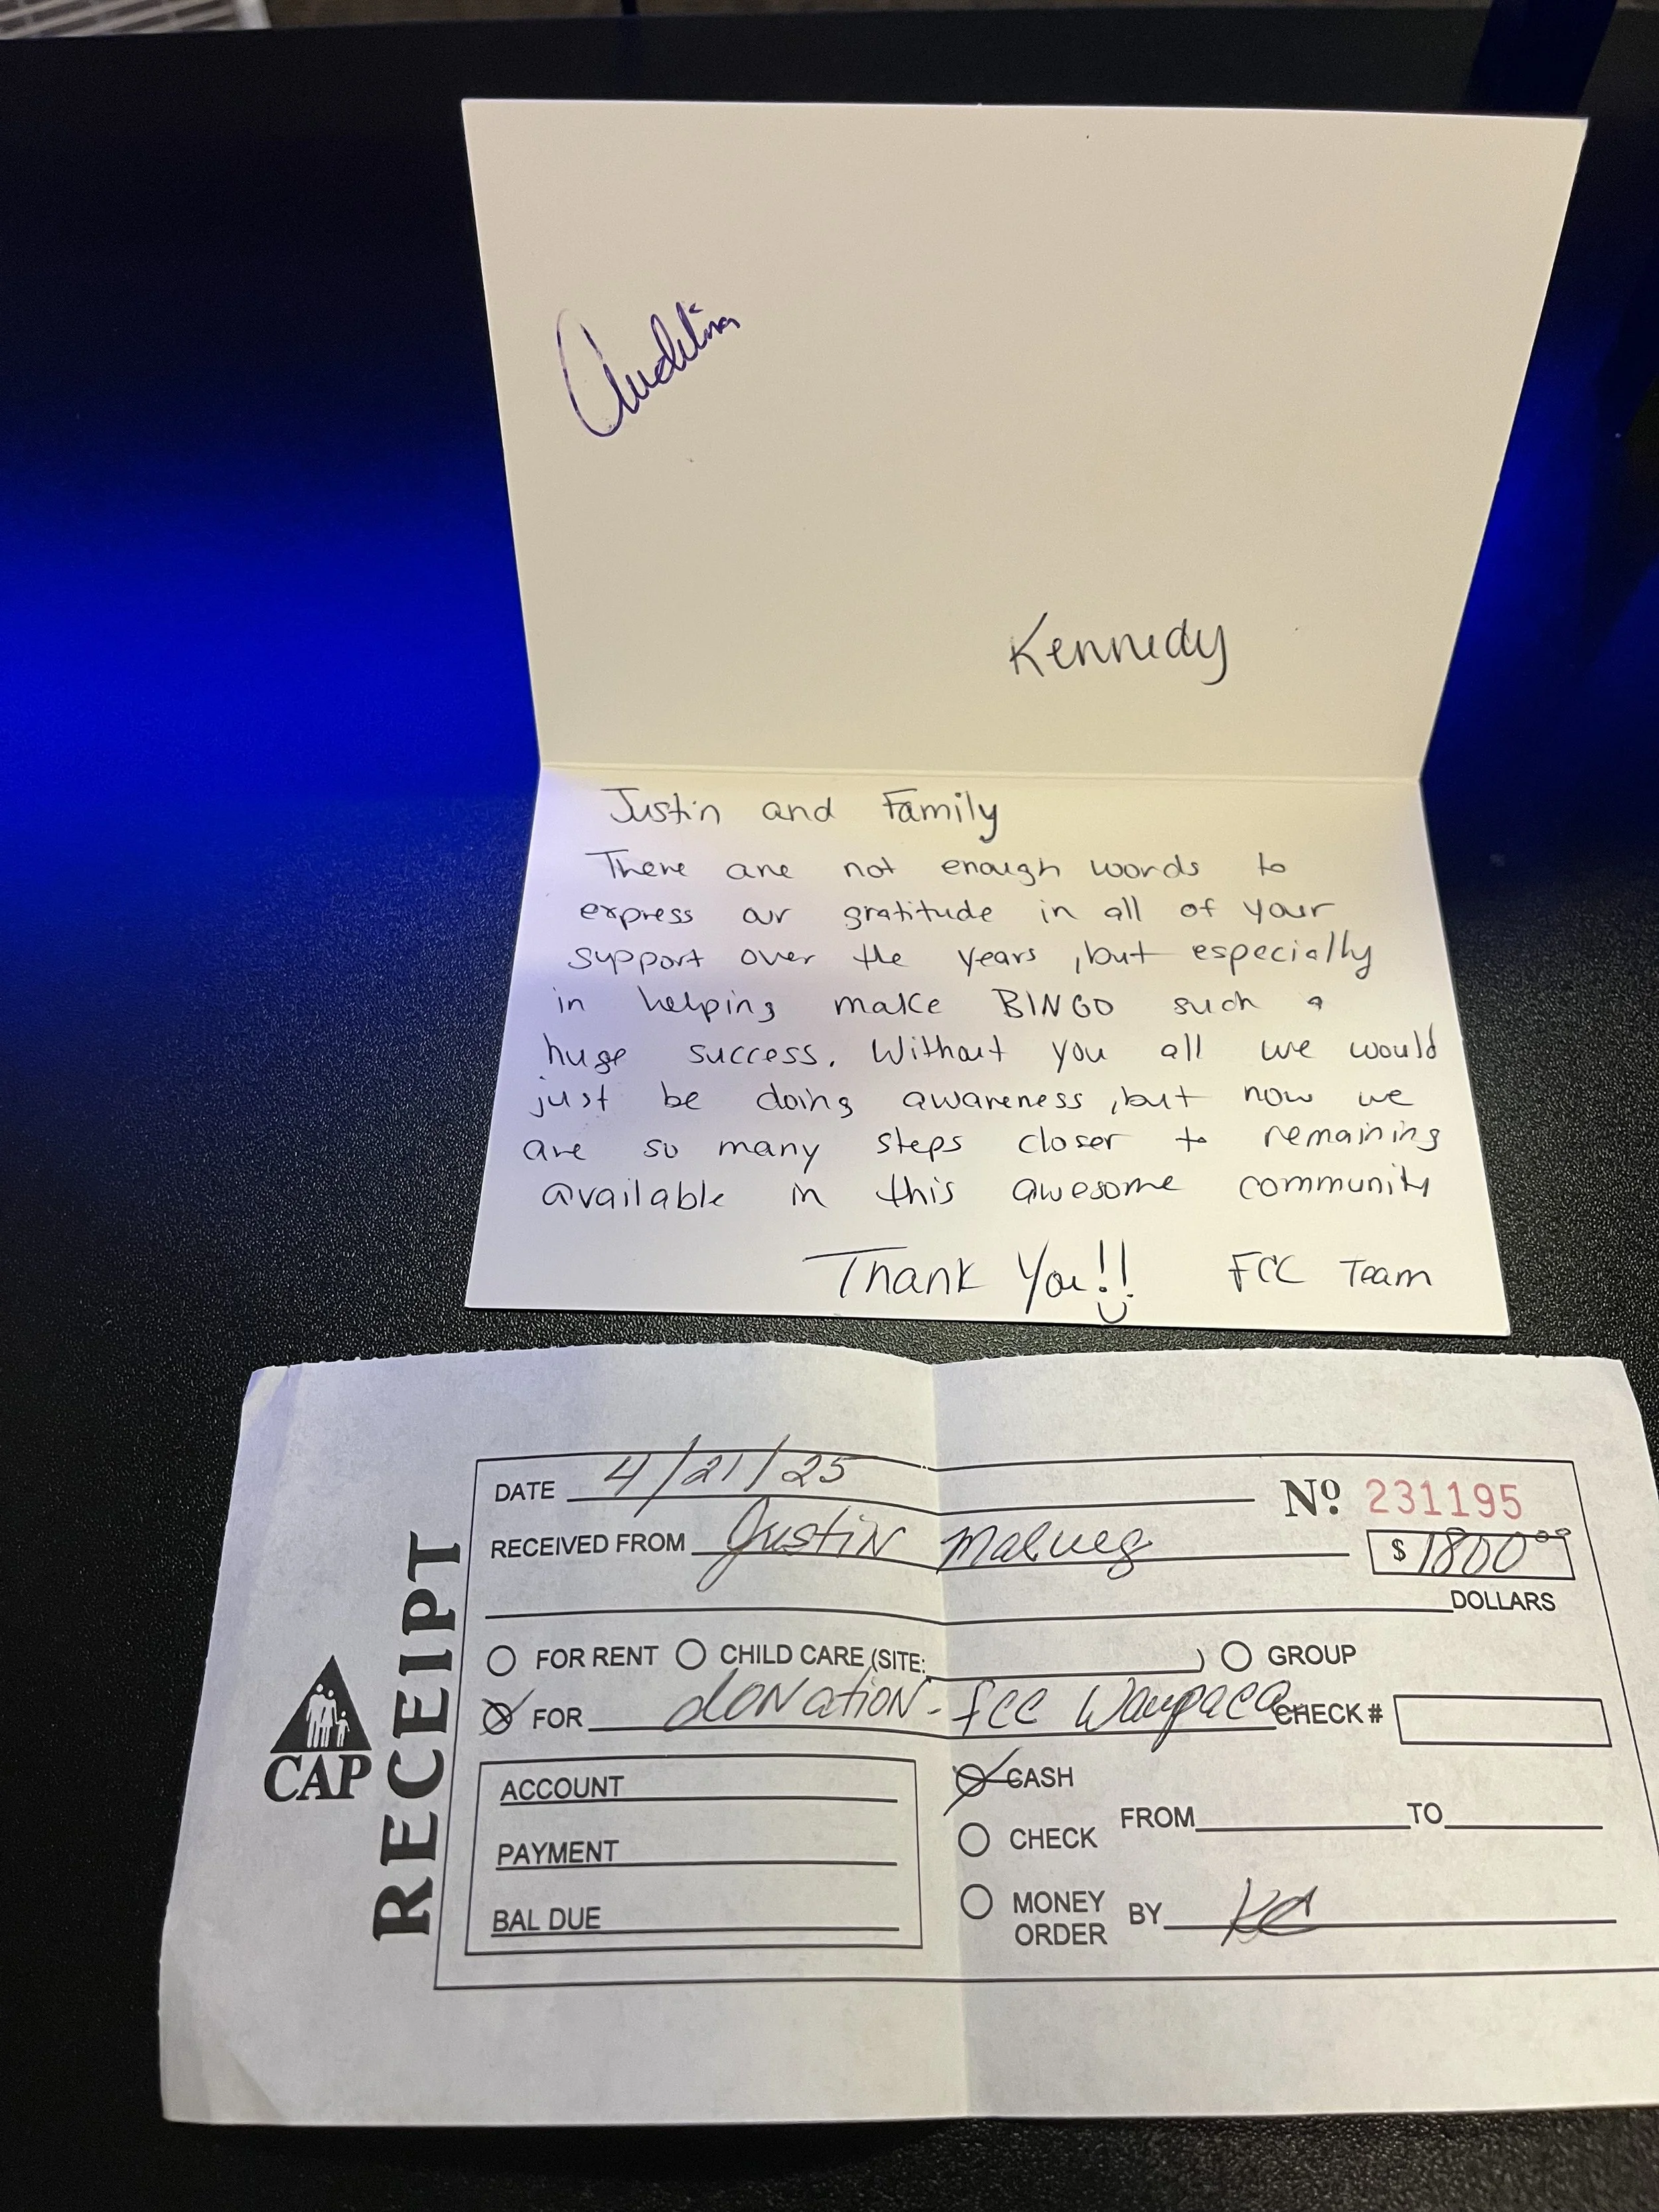 Kennedy
Justin and Family
There are not enough words to
express our gratitude in all of your
support over the years, but especially
in helping make BINGO such a
huge success. Without you all we would
just be doing awareness, but now we
are so many steps closer to remaining
available in this awesome community
Thank You!! FCC Team
DATE 4/21/25 Nº 231195
RECEIVED FROM Justin Malueg $ 1800⁰⁰
DOLLARS
FOR RENT CHILD CARE (SITE: ) GROUP
FOR donation - fcc Waupaca CHECK #
CAP
RECEIPT
ACCOUNT
PAYMENT
BAL DUE
CASH
CHECK FROM TO
MONEY ORDER BY